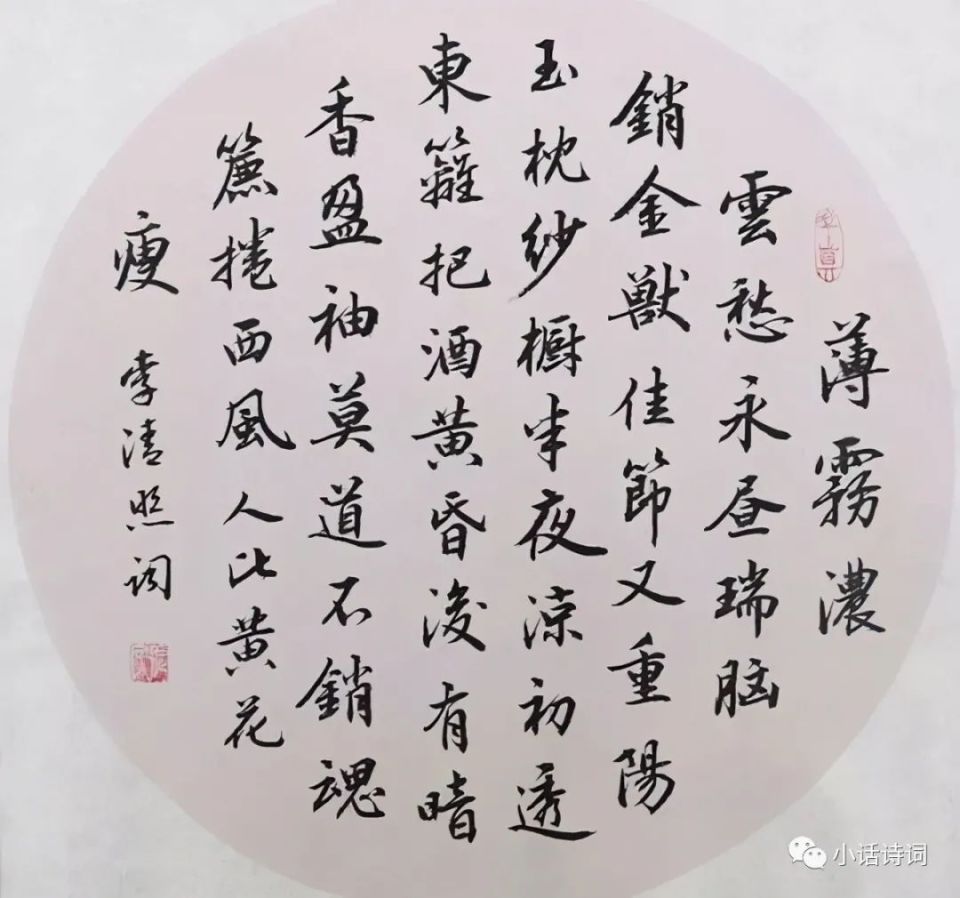 薄霧濃
雲愁永昼瑞脑
銷金獸佳節又重陽
玉枕紗橱半夜涼初透
東籬把酒黄昏後有暗
香盈袖莫道不銷魂
簾捲西風人比黄花
瘦
李清照詞
小话诗词